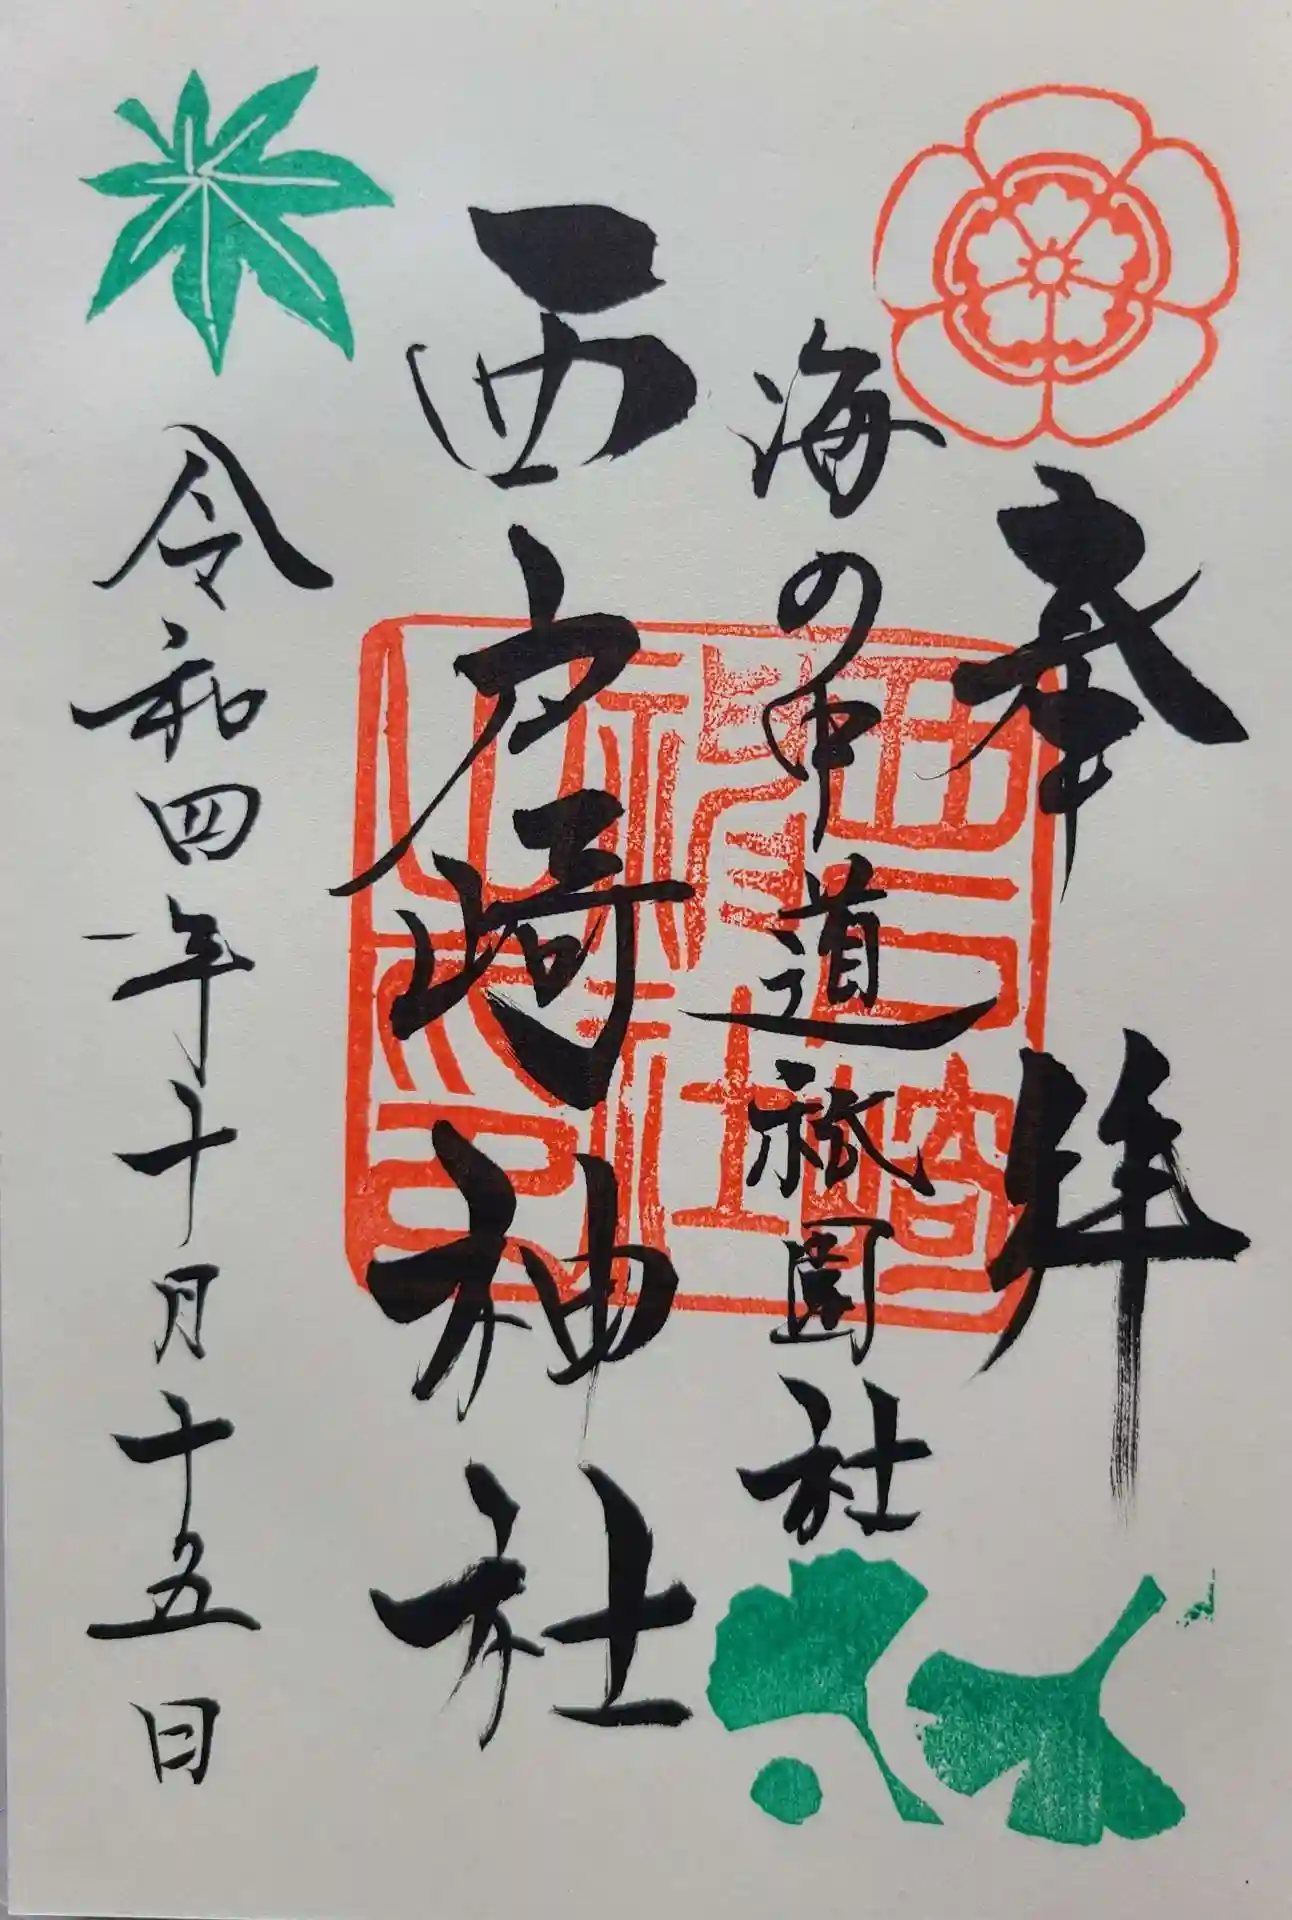 奉拝
海の中道祇園社
西戸崎神社
令和四年十月十五日
西戸崎神社之印